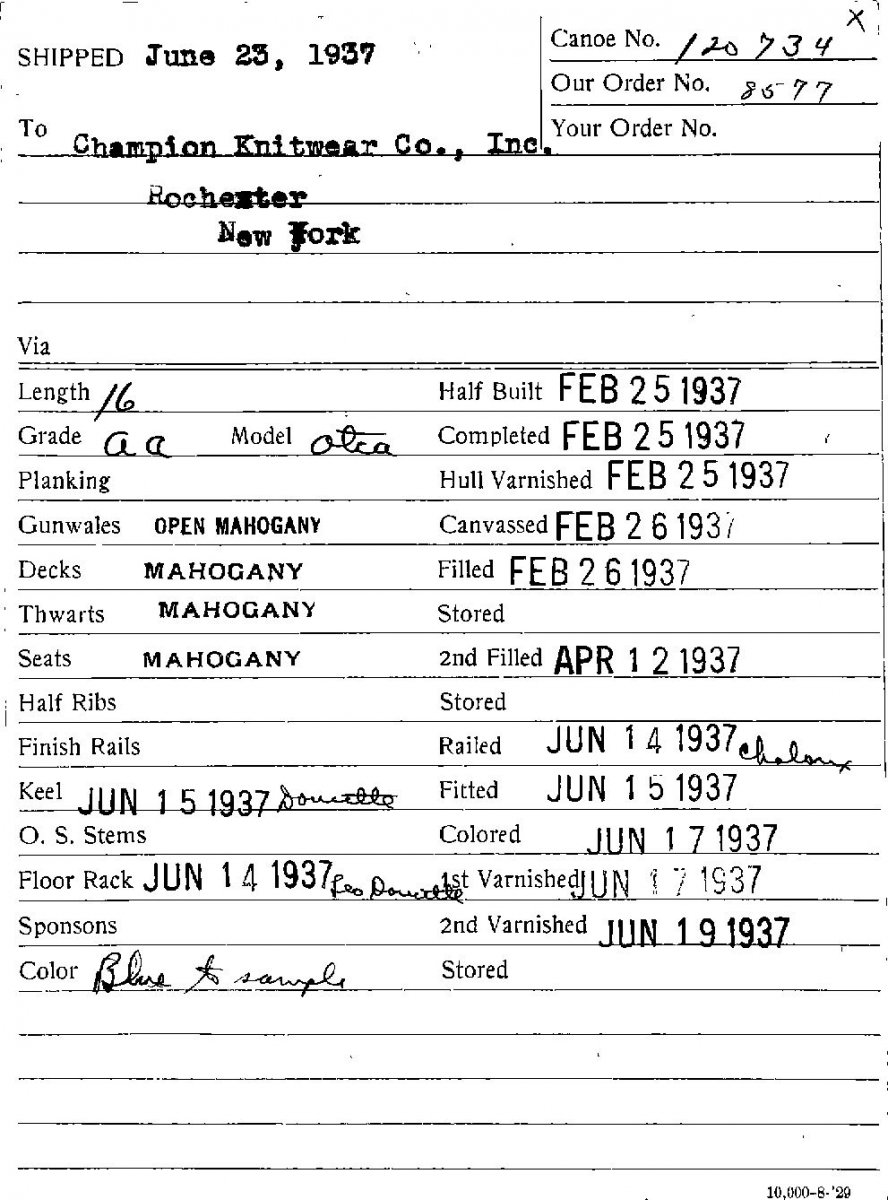 X
SHIPPED June 23, 1937
Canoe No. 120734
Our Order No. 8577
To Champion Knitwear Co., Inc.
Your Order No.
Rochester
New York
Via
Length 16 Half Built FEB 25 1937
Grade a a Model otca Completed FEB 25 1937
Planking Hull Varnished FEB 25 1937
Gunwales OPEN MAHOGANY Canvassed FEB 26 1937
Decks MAHOGANY Filled FEB 26 1937
Thwarts MAHOGANY Stored
Seats MAHOGANY 2nd Filled APR 12 1937
Half Ribs Stored
Finish Rails Railed JUN 14 1937 Chaloux
Keel JUN 15 1937 Doucette Fitted JUN 15 1937
O. S. Stems Colored JUN 17 1937
Floor Rack JUN 14 1937 Leo Doucette 1st Varnished JUN 17 1937
Sponsons 2nd Varnished JUN 19 1937
Color Blue to sample Stored
10,000-8-'29